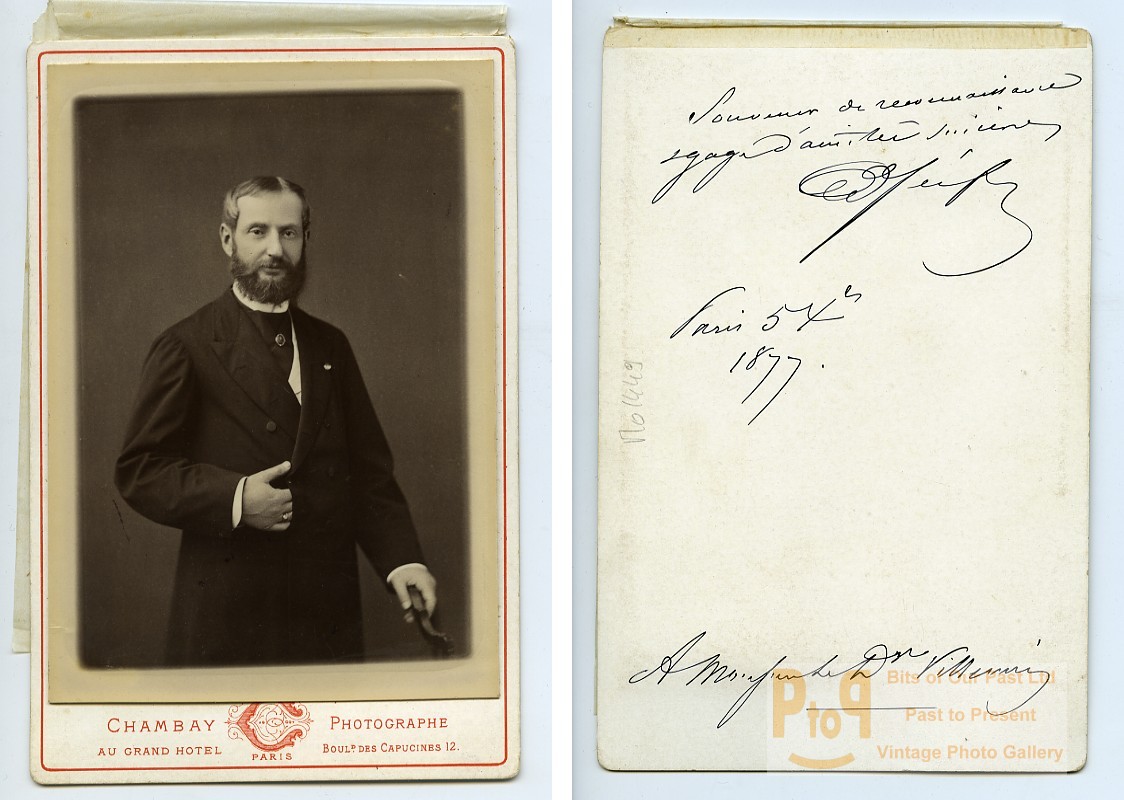 CHAMBAY PHOTOGRAPHE
AU GRAND HOTEL BOULD. DES CAPUCINES 12.
PARIS
Souvenir de reconnaissance
& gage d'amitié sincère
Paris 5 Xbre
1877.
No 1449
A Monsieur le Dr Villemin
PtoP
Bits of Our Past Ltd
Past to Present
Vintage Photo Gallery